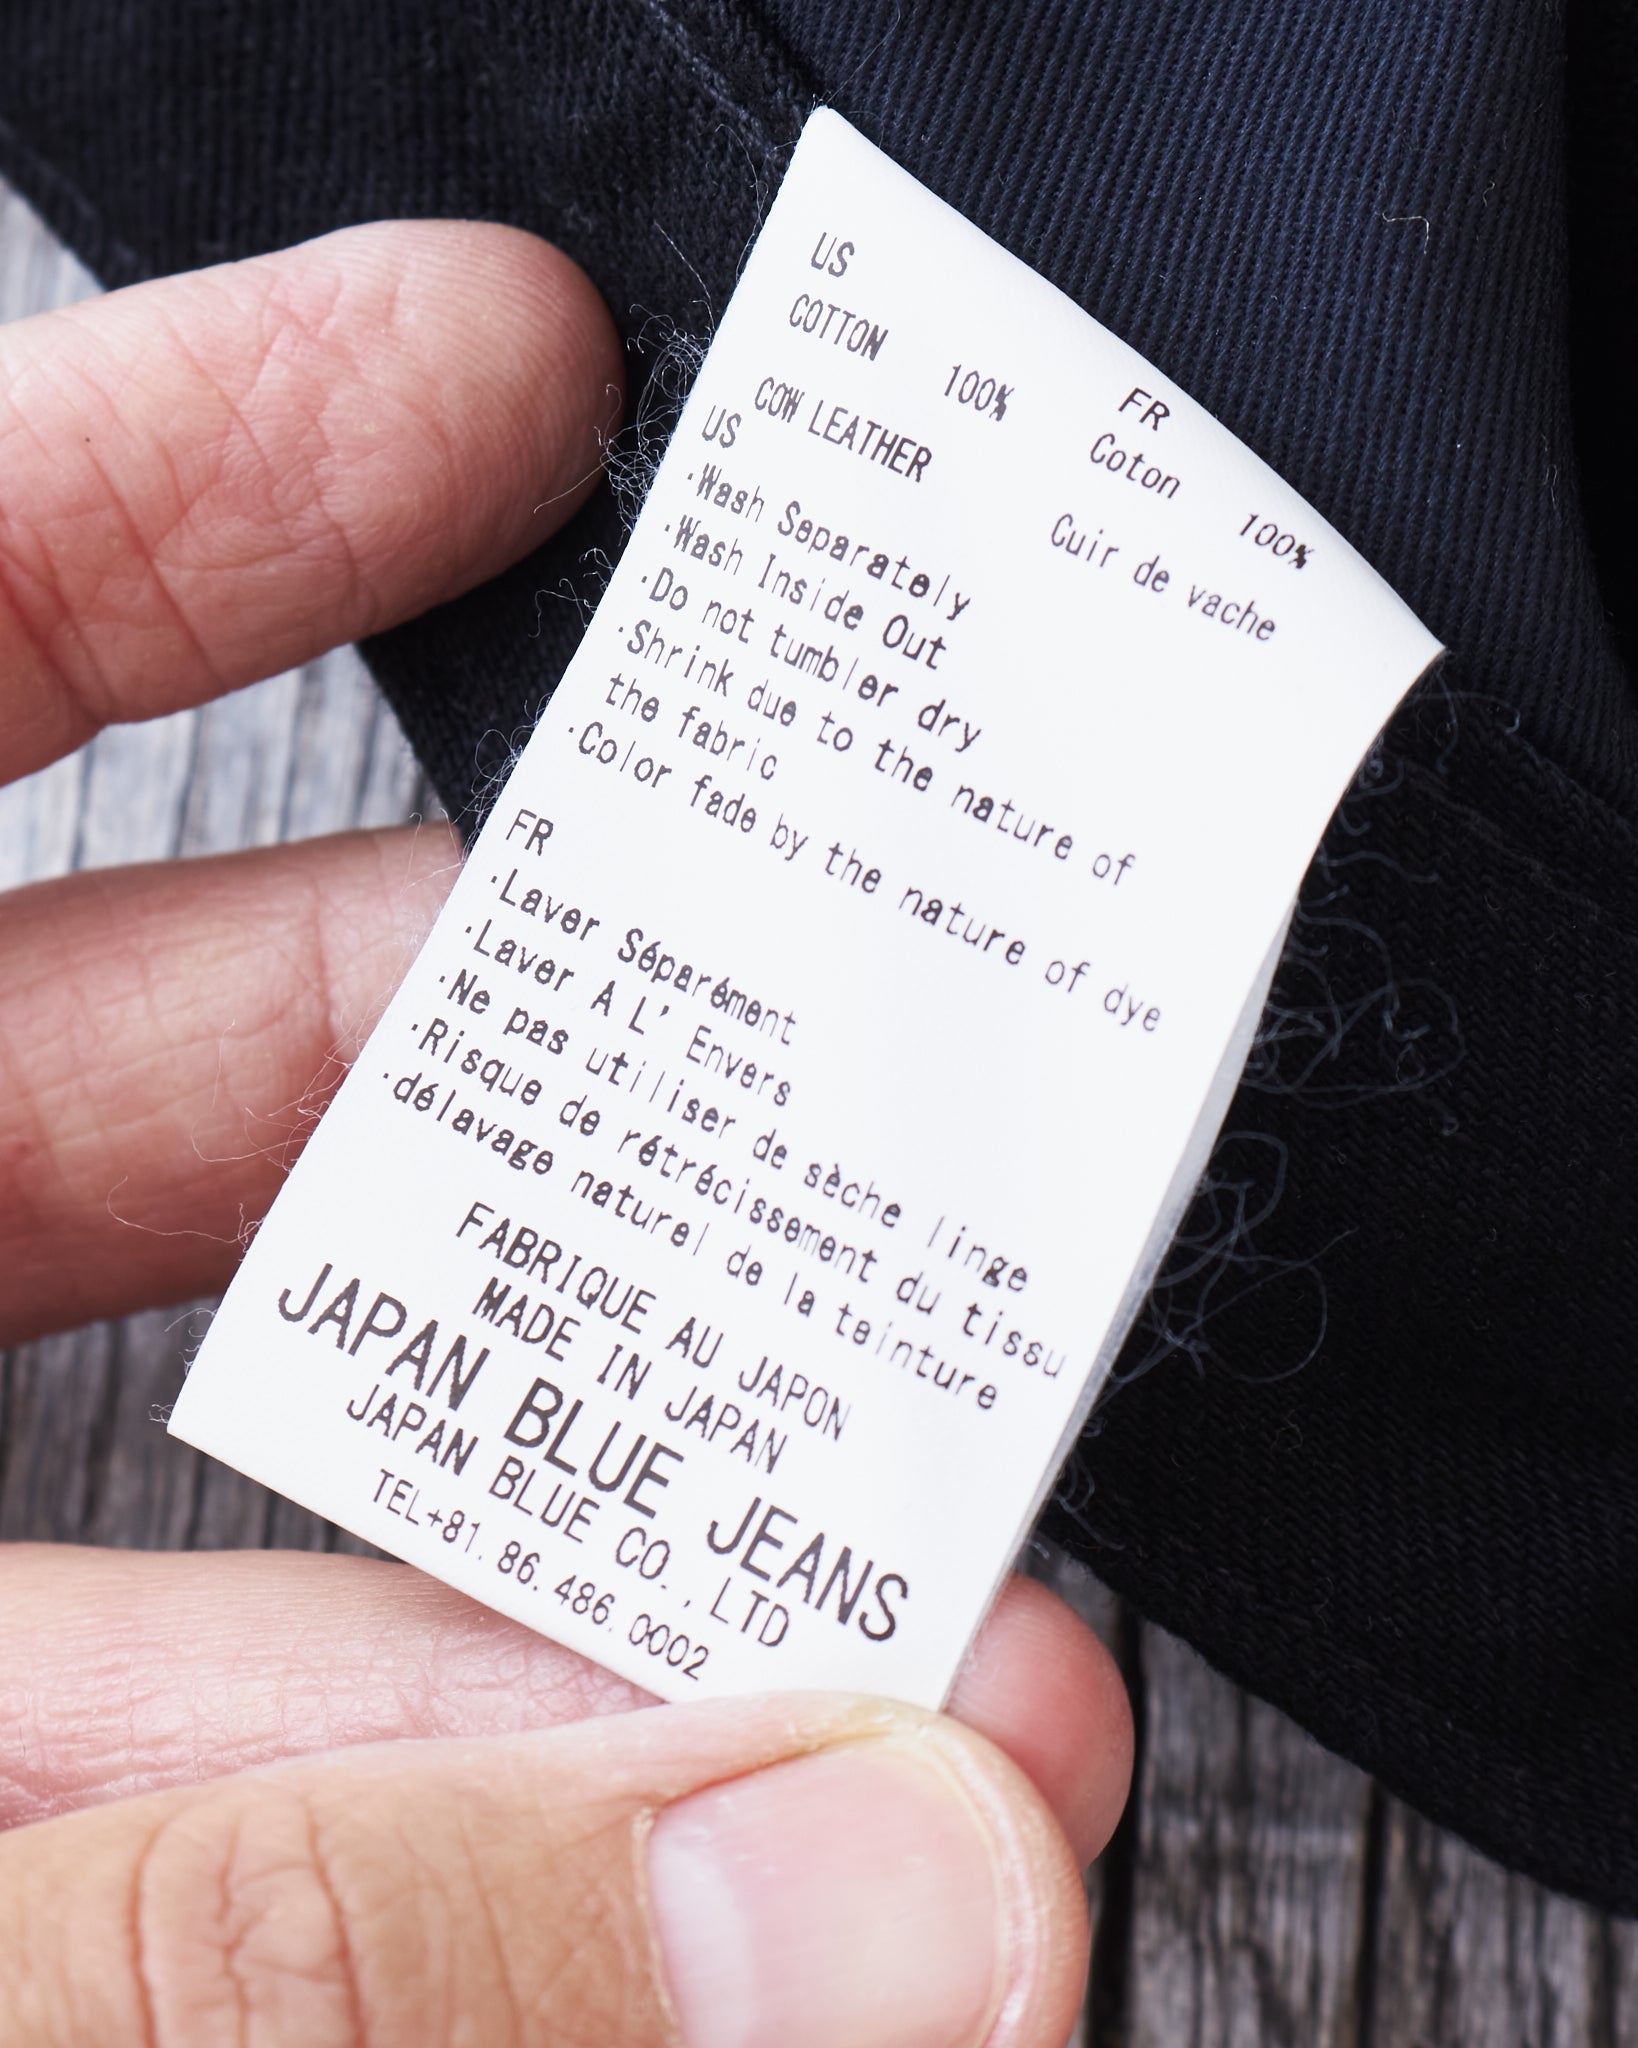 US
COTTON 100%
COW LEATHER
FR
Coton 100%
Cuir de vache
US
·Wash Separately
·Wash Inside Out
·Do not tumbler dry
·Shrink due to the nature of
the fabric
·Color fade by the nature of dye
FR
·Laver Séparément
·Laver A L' Envers
·Ne pas utiliser de sèche linge
·Risque de rétrécissement du tissu
·délavage naturel de la teinture
FABRIQUE AU JAPON
MADE IN JAPAN
JAPAN BLUE JEANS
JAPAN BLUE CO., LTD
TEL+81.86.486.0002